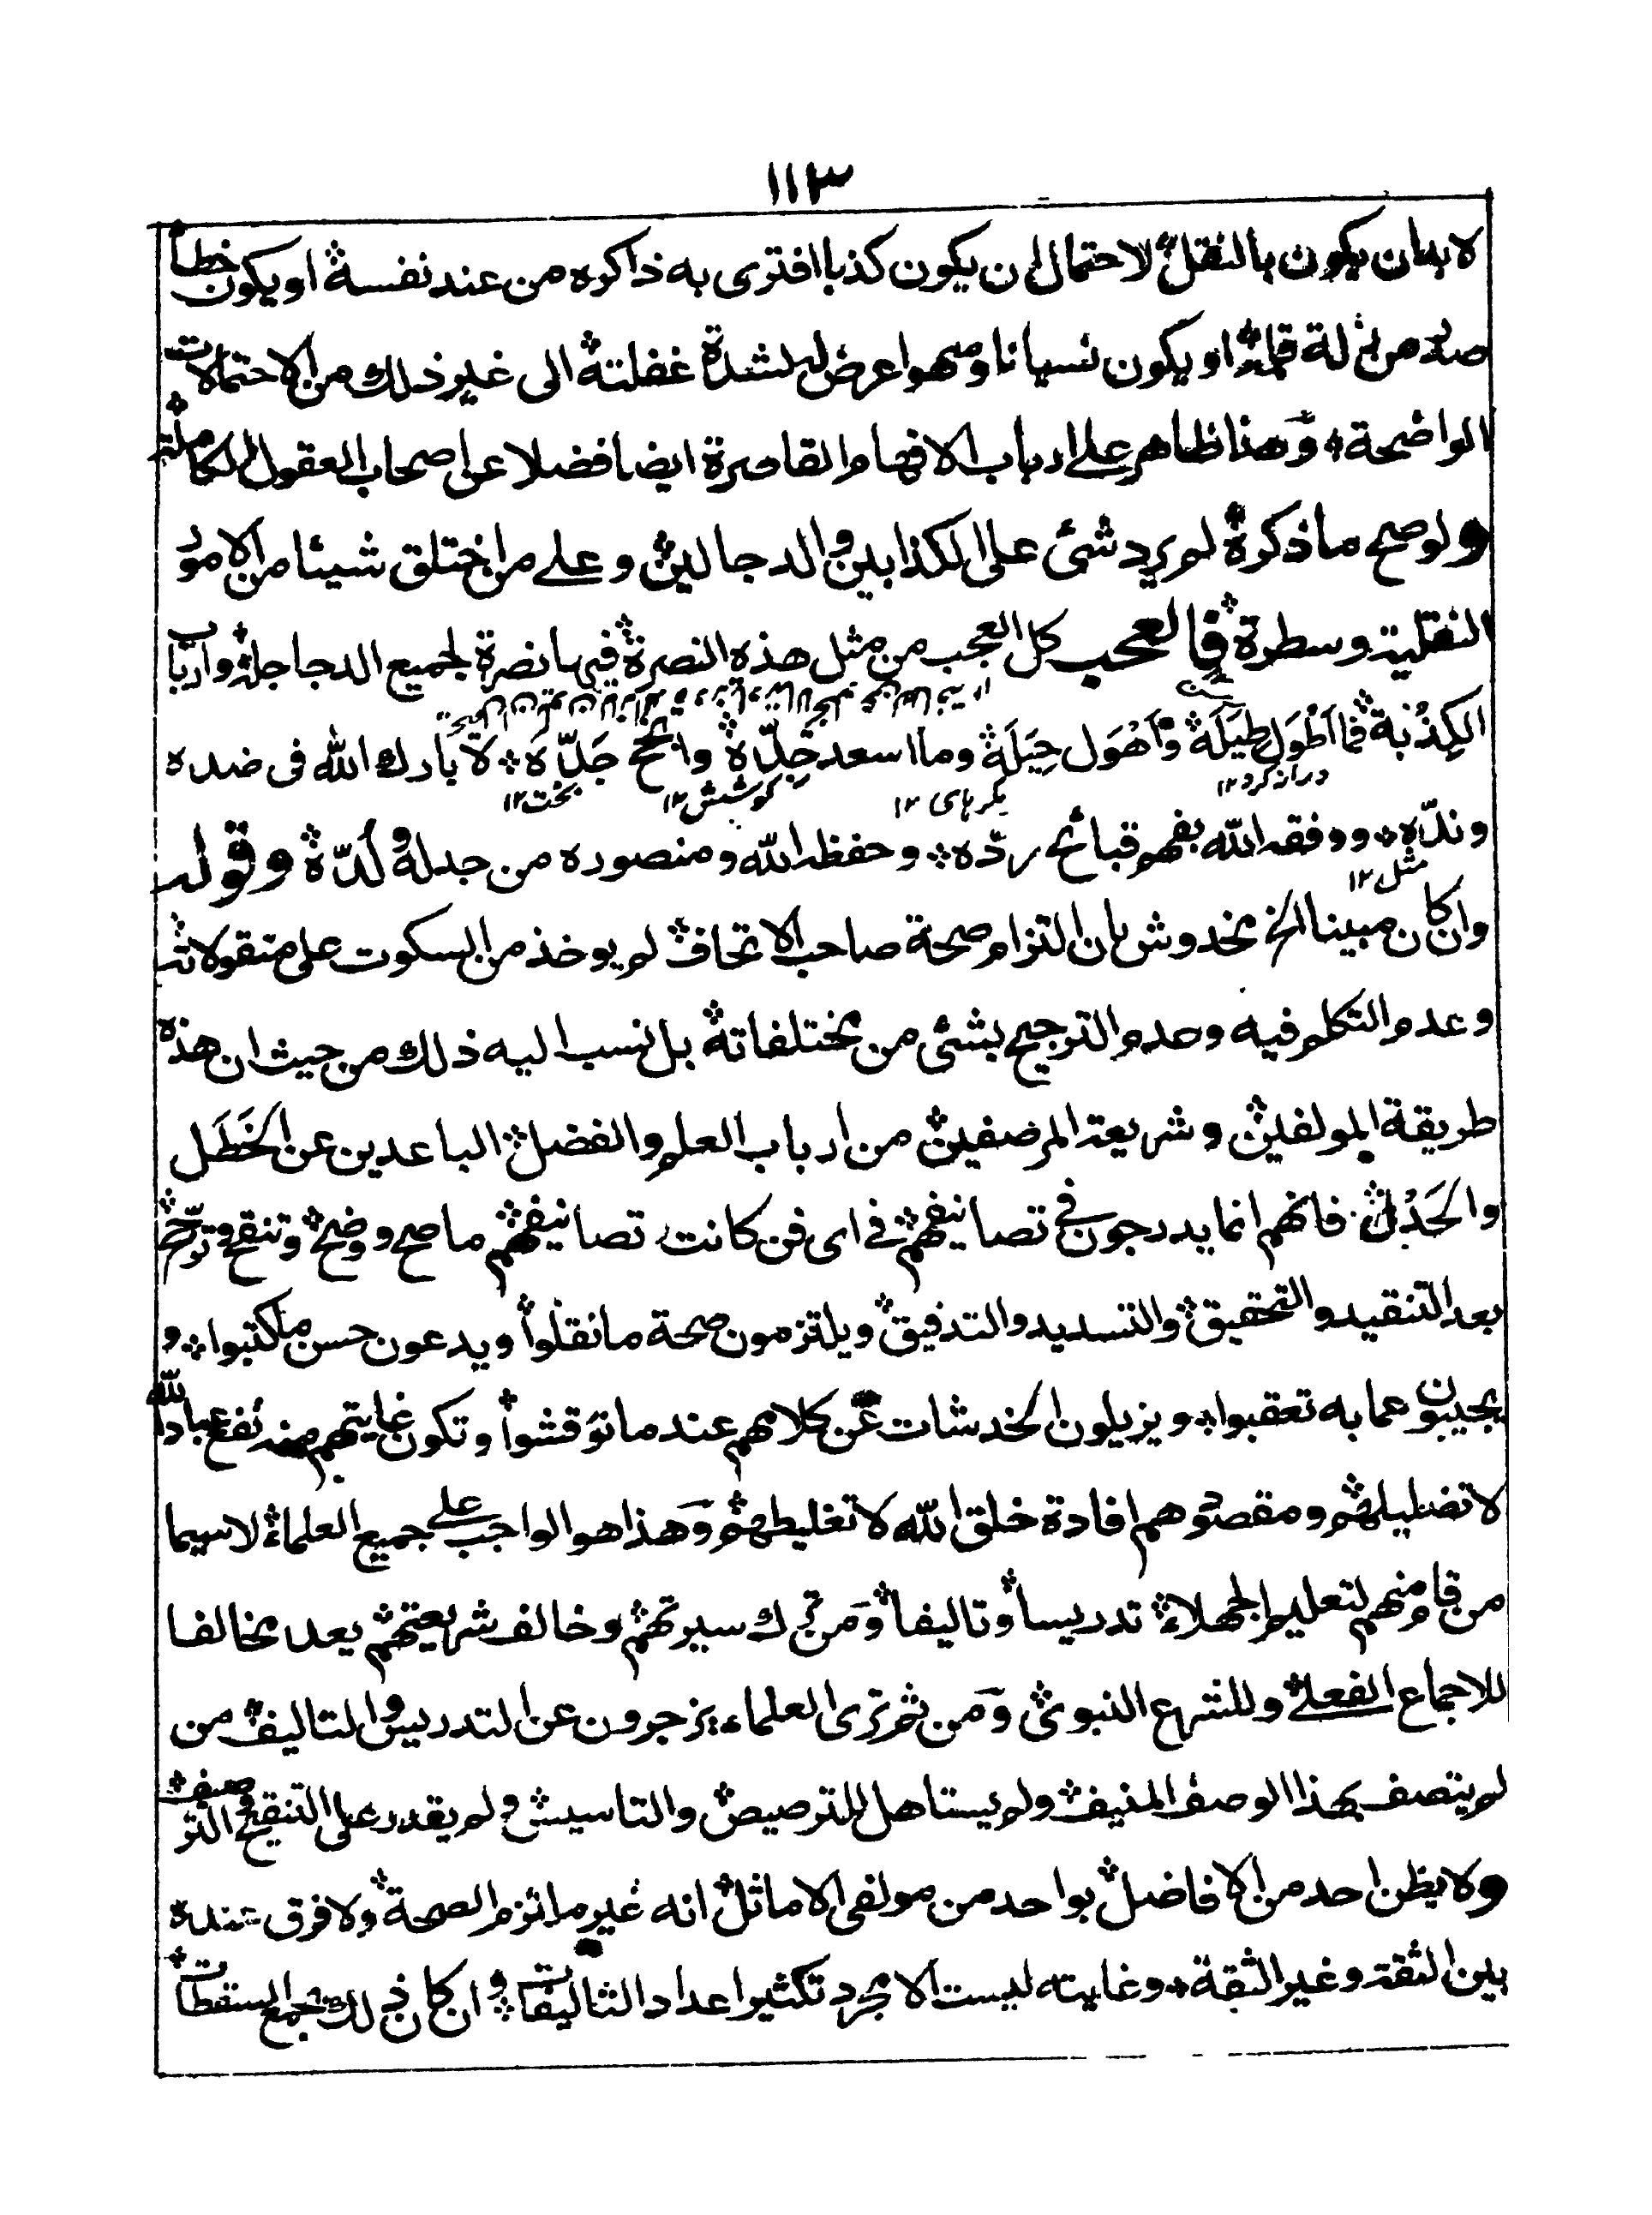 ١١٣
لا بد ان يكون بالنقل لاحتمال ان يكون كذبا افترى به ذاكره من عند نفسه او يكون خطأ
صدر من زلة قلمه او يكون نسيانا وسهوا عرض له لشدة غفلته الى غير ذلك من الاحتمالات
الواضحة وهذا ظاهر على ارباب الافهام القاصرة ايضا فضلا عن اصحاب العقول الكاملة
ولو صح ما ذكره لم يرد شئ على الكذابين والدجالين وعلى من اختلق شيئا من الامور
النقلية وسطره فالعجب كل العجب من مثل هذه النصرة فيها نصرة لجميع الدجاجلة وارباب
الكِذُبَة فما اَطْوَل طِيَلَة وَاَهْوَل حِيَلَة وما اسعد جِدّه وانجح جَدّه لا بارك الله فى ضده
دراز كرد ١٢ مكرهاى ١٢ كوشيش ١٢ بخت ١٢
وندّه ووفقه الله بفهم قبائح ردّه وحفظه الله ومنصوره من جدله ولَدّه وقوله
مثل ١٢
وان كان مبينا الخ مخدوش بان التزام صحة صاحب الاتحاف لم يوخذ من السكوت على منقولاته
وعدم التكلم فيه وعدم الترجيح بشئ من مختلفاته بل نسب اليه ذلك من حيث ان هذه
طريقة المولفين وشريعة المرصفين من ارباب العلم والفضل الباعدين عن الخَطَل
والجَدْل فانهم انما يدرجون فى تصانيفهم فى اى فن كانت تصانيفهم ما صح ووضح وتنقح وترجح
بعد التنقيد والتحقيق والتسديد والتدقيق ويلتزمون صحة ما نقلوا ويدعون حسن ما كتبوا و
يجيبون عما به تعقبوا ويزيلون الخدشات عن كلامهم عند ما نوقشوا وتكون غايتهم منه نفع عباد الله
لا تضليلهم ومقصودهم افادة خلق الله لا تغليطهم وهذا هو الواجب على جميع العلماء لا سيما
من قام منهم لتعليم الجهلاء تدريسا وتاليفا ومن ترك سيرتهم وخالف شريعتهم يعد مخالفا
للاجماع الفعلى وللشرع النبوى ومن ثم ترى العلماء يزجرون عن التدريس والتاليف من
لم يتصف بهذا الوصف المنيف ولم يستاهل للترصيص والتاسيس ولم يقدر على التنقيح والترصيف
ولا يظن احد من الافاضل بواحد من مولفى الاماثل انه غير ملتزم الصحة ولا فرق عنده
بين الثقة وغير الثقة وغايته ليست الا مجرد تكثير اعداد التاليفات وان كان ذلك بجمع السقطات